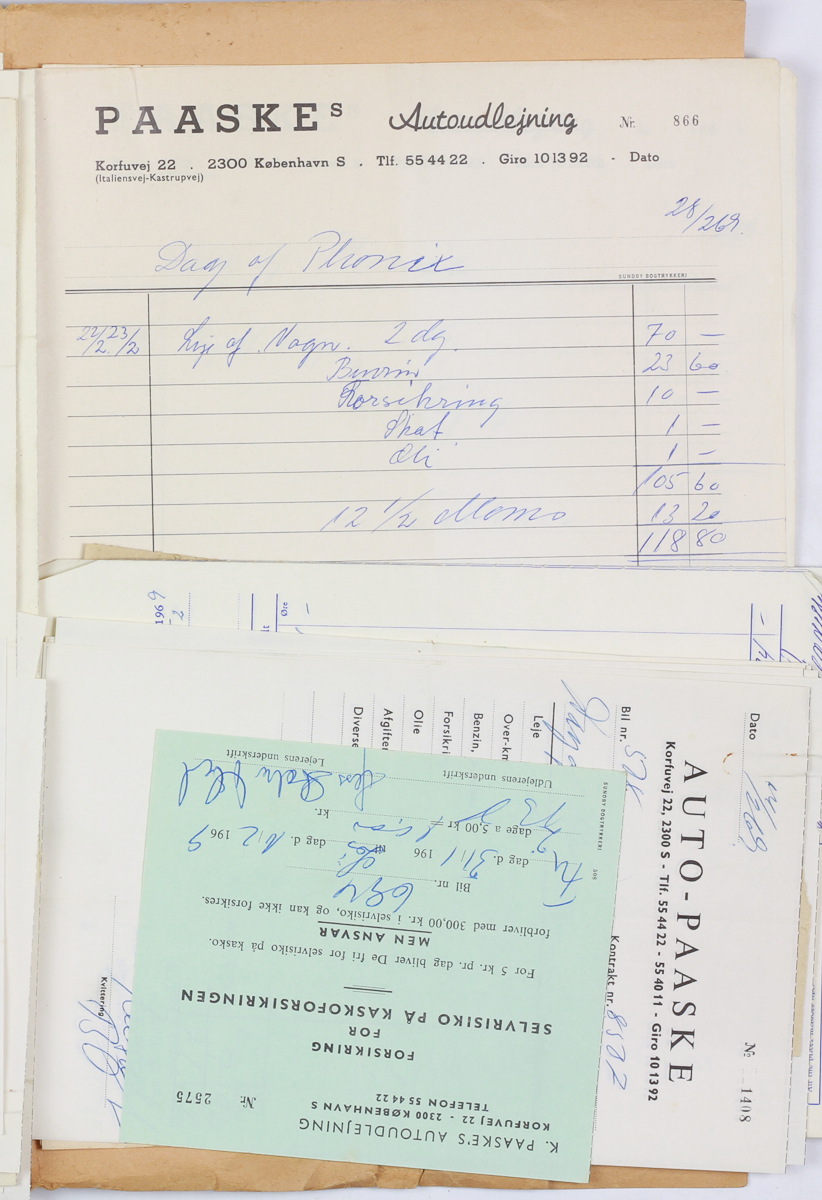 PAASKES Autoudlejning Nr. 866
Korfuvej 22 . 2300 København S . Tlf. 55 44 22 . Giro 10 13 92 - Dato
(Italiensvej-Kastrupvej)
28/2 69.
Dag of Phonix
SUNDBY BOGTRYKKERI
22/2 23/2 Leje af Vogn. 2 dg. 70 —
Benzin 23 60
Forsikring 10 —
Skat 1 —
Oli 1 —
105 60
12 1/2 Moms 13 20
118 80
196 9
Øre
Dato
AUTO-PAASKE
Nº 1408
Korfuvej 22, 2300 S - Tlf. 55 44 22 - 55 40 11 - Giro 10 13 92
Bil nr.
Kontrakt nr. 8522
Leje
Over-km
Benzin,
Forsikri
Olie
Afgifter
Diverse
Kvittering
K. PAASKE'S AUTOUDLEJNING
KORFUVEJ 22 - 2300 KØBENHAVN S
TELEFON 55 44 22
Nr. 2575
FORSIKRING
FOR
SELVRISIKO PÅ KASKOFORSIKRINGEN
For 5 kr. pr. dag bliver De fri for selvrisiko på kasko.
MEN ANSVAR
forbliver med 300,00 kr. i selvrisiko, og kan ikke forsikres.
Bil nr. 694
dag d. 31/1 196 dag d. 1/2 1969
dage a 5,00 kr kr.
Udlejerens underskrift Lejerens underskrift
SUNDBY BOGTRYKKERI 505